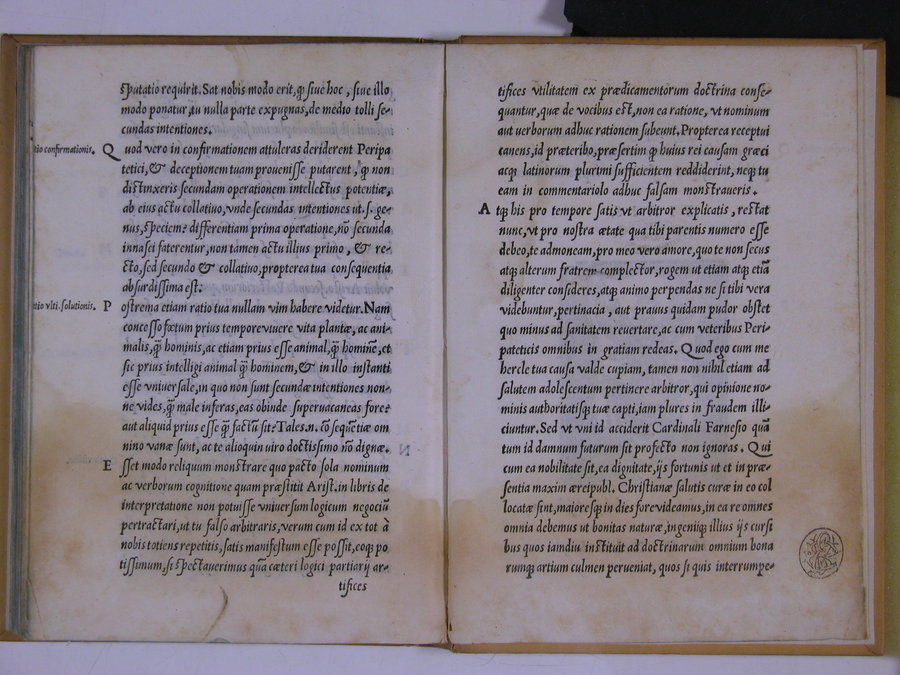 sputatio requirit. Sat nobis modo erit, ꝙ siue hoc, siue illo
modo ponatur, tu nulla parte expugnas, de medio tolli se-
cundas intentiones.
tio confirmationis.
Quod vero in confirmationem attuleras deriderent Peripa
tetici, & deceptionem tuam prouenisse putarent, ꝙ non
distinxeris secundam operationem intellectus potentiæ,
ab eius actu collatiuo, vnde secundas intentiones ut .s. ge-
nus, speciem, differentiam prima operatione, nō secunda
innasci faterentur, non tamen actu illius primo, & re-
cto, sed secundo & collatiuo, propterea tua consequentia
absurdissima est.
tio vlti. solutionis.
Postrema etiam ratio tua nullam vim habere videtur. Nam
concesso fœtum prius tempore viuere vita plantæ, ac ani-
malis, ꝗ̄ hominis, ac etiam prius esse animal, ꝗ̄ hominē, et
sic prius intelligi animal ꝗ̄ hominem, & in illo instanti
esse vniuersale, in quo non sunt secundæ intentiones non-
ne vides, ꝗ̄ male inferas, eas obinde superuacaneas fore?
aut aliquid prius esse ꝗ̄ factū sit? Tales .n. cōsequētiæ om
nino vanæ sunt, ac te alioquin uiro doctissimo nō dignæ.
Esset modo reliquum monstrare quo pacto sola nominum
ac verborum cognitione quam præstitit Arist. in libris de
interpretatione non potuisse vniuersum logicum negociū
pertractari, ut tu falso arbitraris, verum cum id ex tot à
nobis totiens repetitis, satis manifestum esse possit, eoꝗ; po
tissimum, si spectauerimus quā cæteri logici partiarij ar-
tifices
tifices vtilitatem ex prædicamentorum doctrina conse-
quantur, quæ de vocibus est, non ea ratione, vt nominum
aut uerborum adhuc rationem subeunt. Propterea receptui
canens, id præteribo, præsertim ꝙ huius rei causam græci
acꝗ; latinorum plurimi sufficientem reddiderint, neꝗ; tu
eam in commentariolo adhuc falsam monstraueris.
Atꝗ; his pro tempore satis vt arbitror explicatis, restat
nunc, vt pro nostra ætate qua tibi parentis numero esse
debeo, te admoneam, pro meo vero amore, quo te non secus
atꝗ; alterum fratrem complector, rogem ut etiam atꝗ; etiā
diligenter consideres, atꝗ; animo perpendas ne si tibi vera
videbuntur, pertinacia, aut prauus quidam pudor obstet
quo minus ad sanitatem reuertare, ac cum veteribus Peri-
pateticis omnibus in gratiam redeas. Quod ego cum me
hercle tua causa valde cupiam, tamen non nihil etiam ad
salutem adolescentum pertinere arbitror, qui opinione no-
minis authoritatisꝗ; tuæ capti, iam plures in fraudem illi-
ciuntur. Sed vt vni id acciderit Cardinali Farnesio quā
tum id damnum futurum sit profecto non ignoras. Qui
cum ea nobilitate sit, ea dignitate, ijs fortunis ut et in præ-
sentia maxim æreipubl. Christianæ salutis curæ in eo col
locatæ sint, maioresꝗ; in dies fore videamus, in ea re omnes
omnia debemus ut bonitas naturæ, ingeniiꝗ; illius ijs cursi
bus quos iamdiu instituit ad doctrinarum omnium bona
rumꝗ; artium culmen perueniat, quos si quis interrumpe-